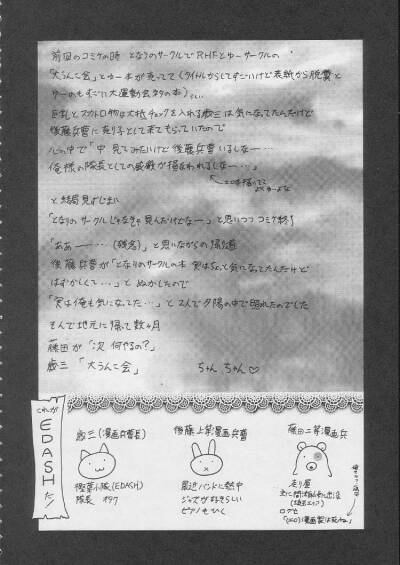 前回のコミケの時 となりのサークルでRHFとゆーサークルの
「大うんこ会」とゆー本が売ってて(タイトルからしてすごいけど表紙から脱糞と
ゆーのもすごい大運動会ネタの本)
巨乳とスカトロ物は大抵チェックを入れる歳三は気になってたんだけど
後藤兵曹に売り子として来てもらっていたので
心の中で「中見てみたいけど後藤兵曹いるしなー…
俺様の隊長としての威厳が損なわれるしなー…」
と結局見ずじまい
「となりのサークルじゃなきゃ見んだけどなー」と思いつつコミケ終了
「ああー……(残念)」と思いながらの帰り道
後藤兵曹が「となりのサークルの本 実はちょっと気になってたんだけど
はずかしくて…」とぬかしたので
「実は俺も気になってた…」と2人で夕陽の中で照れたのでした
そんで地元に帰って数ヶ月
藤田が「次 何やるの?」
歳三「大うんこ会」 ちゃん ちゃん♡
これが
EDASHだ!
歳三(漫画兵曹長)
樫葉小隊(EDASH)
隊長 オタク
後藤上等漫画兵曹
最近バンドに熱中
ジャズが好きらしい
ピアノもひく
藤田二等漫画兵
走り屋